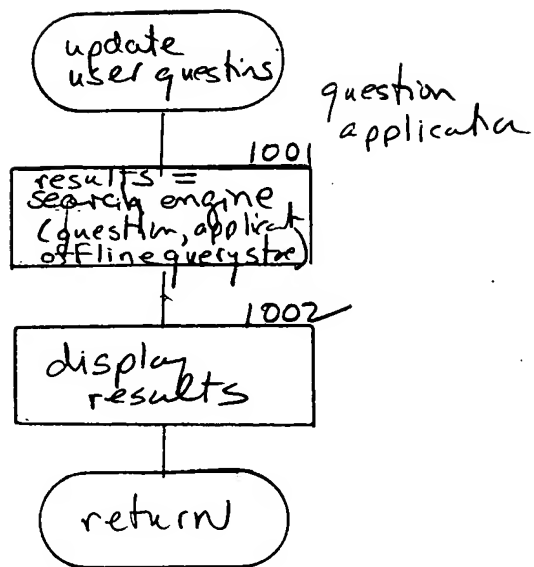 update
user questins
question
application
1001
results =
search engine
(question, applicat
offline query store)
1002
display
results
return